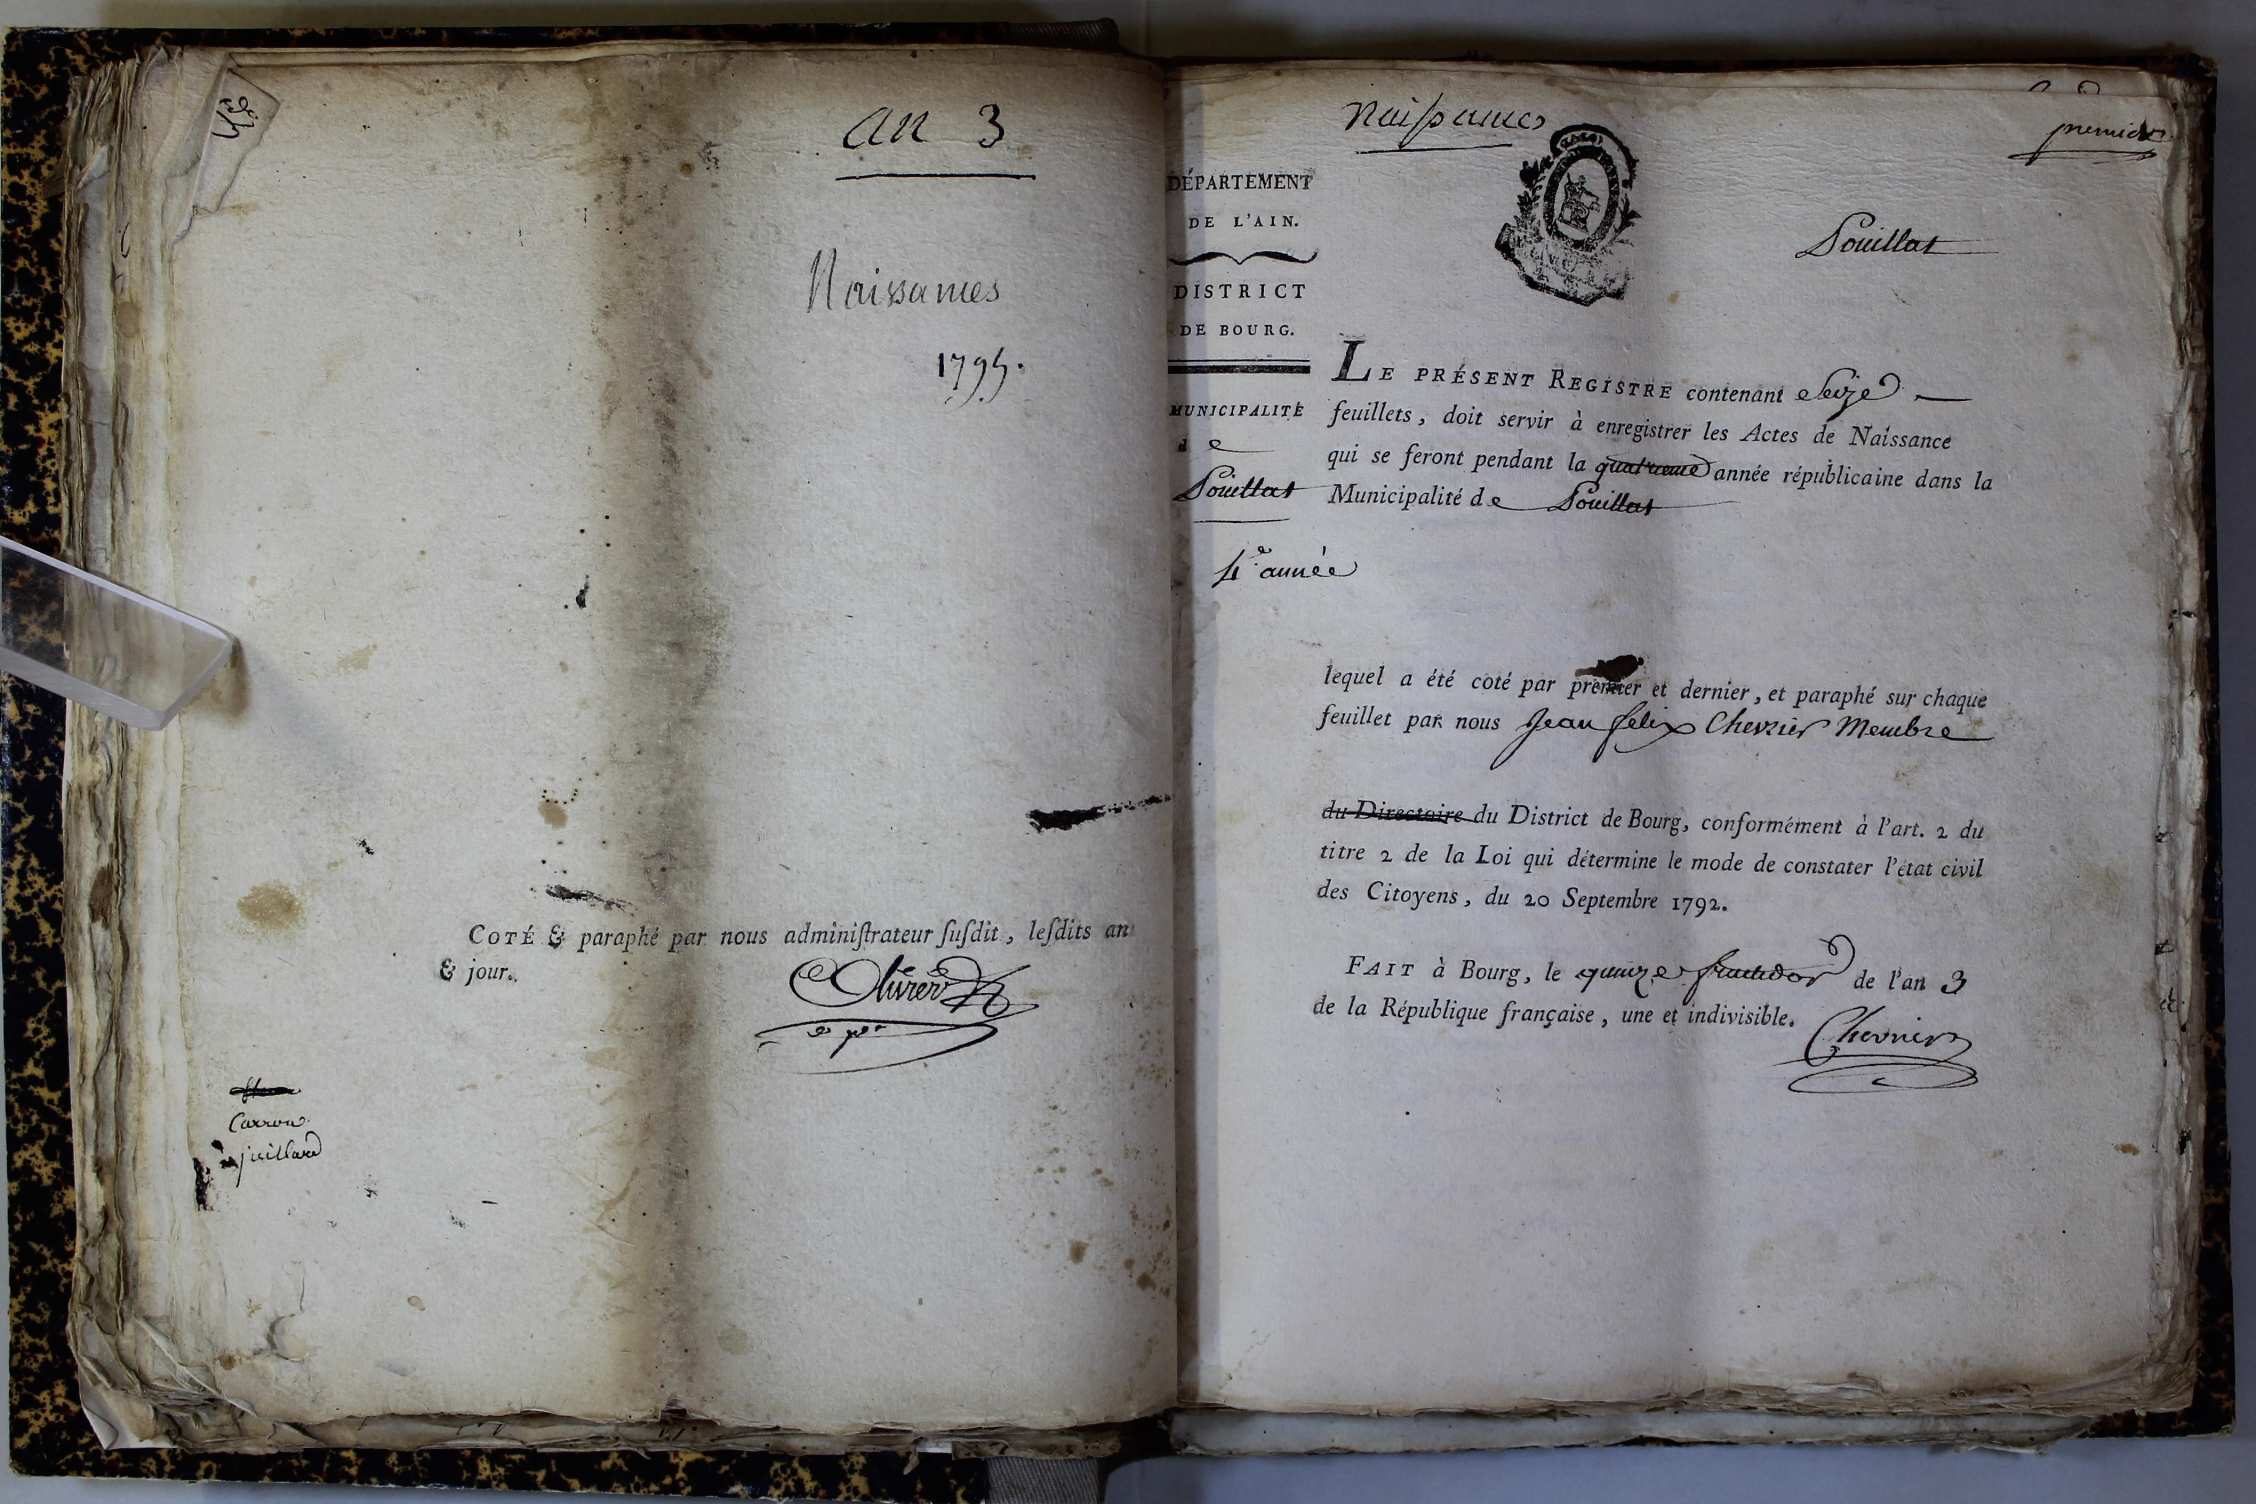 an 3
Naissances
1795.
COTÉ & paraphé par nous adminiſtrateur ſuſdit, leſdits an
& jour.
Olivier
Carron
juillard
Naissances
premier
DÉPARTEMENT
DE L'AIN.
DISTRICT
DE BOURG.
MUNICIPALITÉ
de
Pouillat
4e année
Pouillat
LE PRÉSENT REGISTRE contenant Seize
feuillets, doit servir à enregistrer les Actes de Naissance
qui se feront pendant la quatrieme année républicaine dans la
Municipalité de Pouillat
lequel a été coté par premier et dernier, et paraphé sur chaque
feuillet par nous Jean felix Chevrier Membre
du Directoire du District de Bourg, conformément à l'art. 2 du
titre 2 de la Loi qui détermine le mode de constater l'état civil
des Citoyens, du 20 Septembre 1792.
FAIT à Bourg, le quinze fructidor de l'an 3
de la République française, une et indivisible.
Chevrier